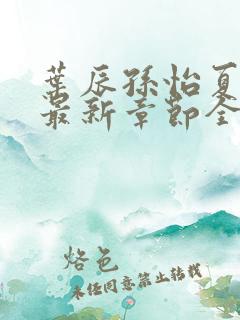 叶辰孙怡夏
最新章节全
烙色
未经同意禁止转载